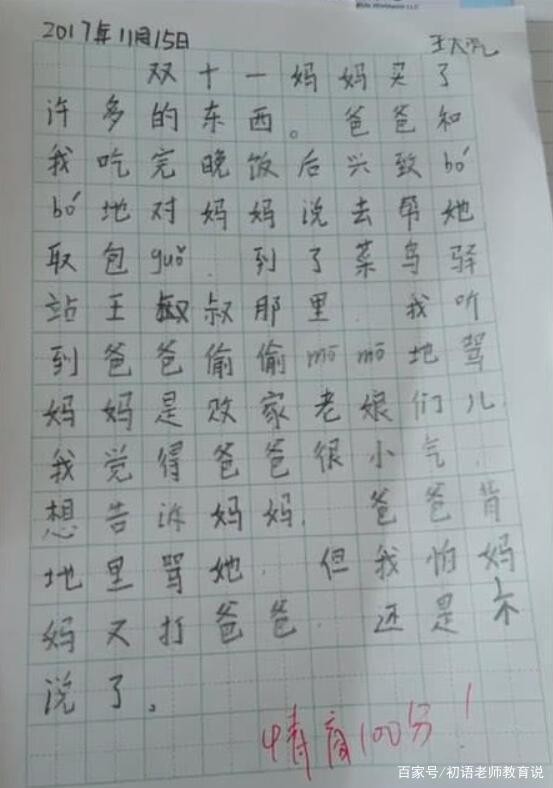 2017年11月15日
双十一妈妈买了
许多的东西。爸爸和
我吃完晚饭后兴致bó
bó地对妈妈说去帮她
取包guǒ.到了菜鸟驿
站王叔叔那里.我听
到爸爸偷偷mōmō地骂
妈妈是败家老娘们儿.
我觉得爸爸很小气.
想告诉妈妈.爸爸背
地里骂她.但我怕妈
妈又打爸爸.还是不
说了。
情商100分!
百家号/初语老师教育说